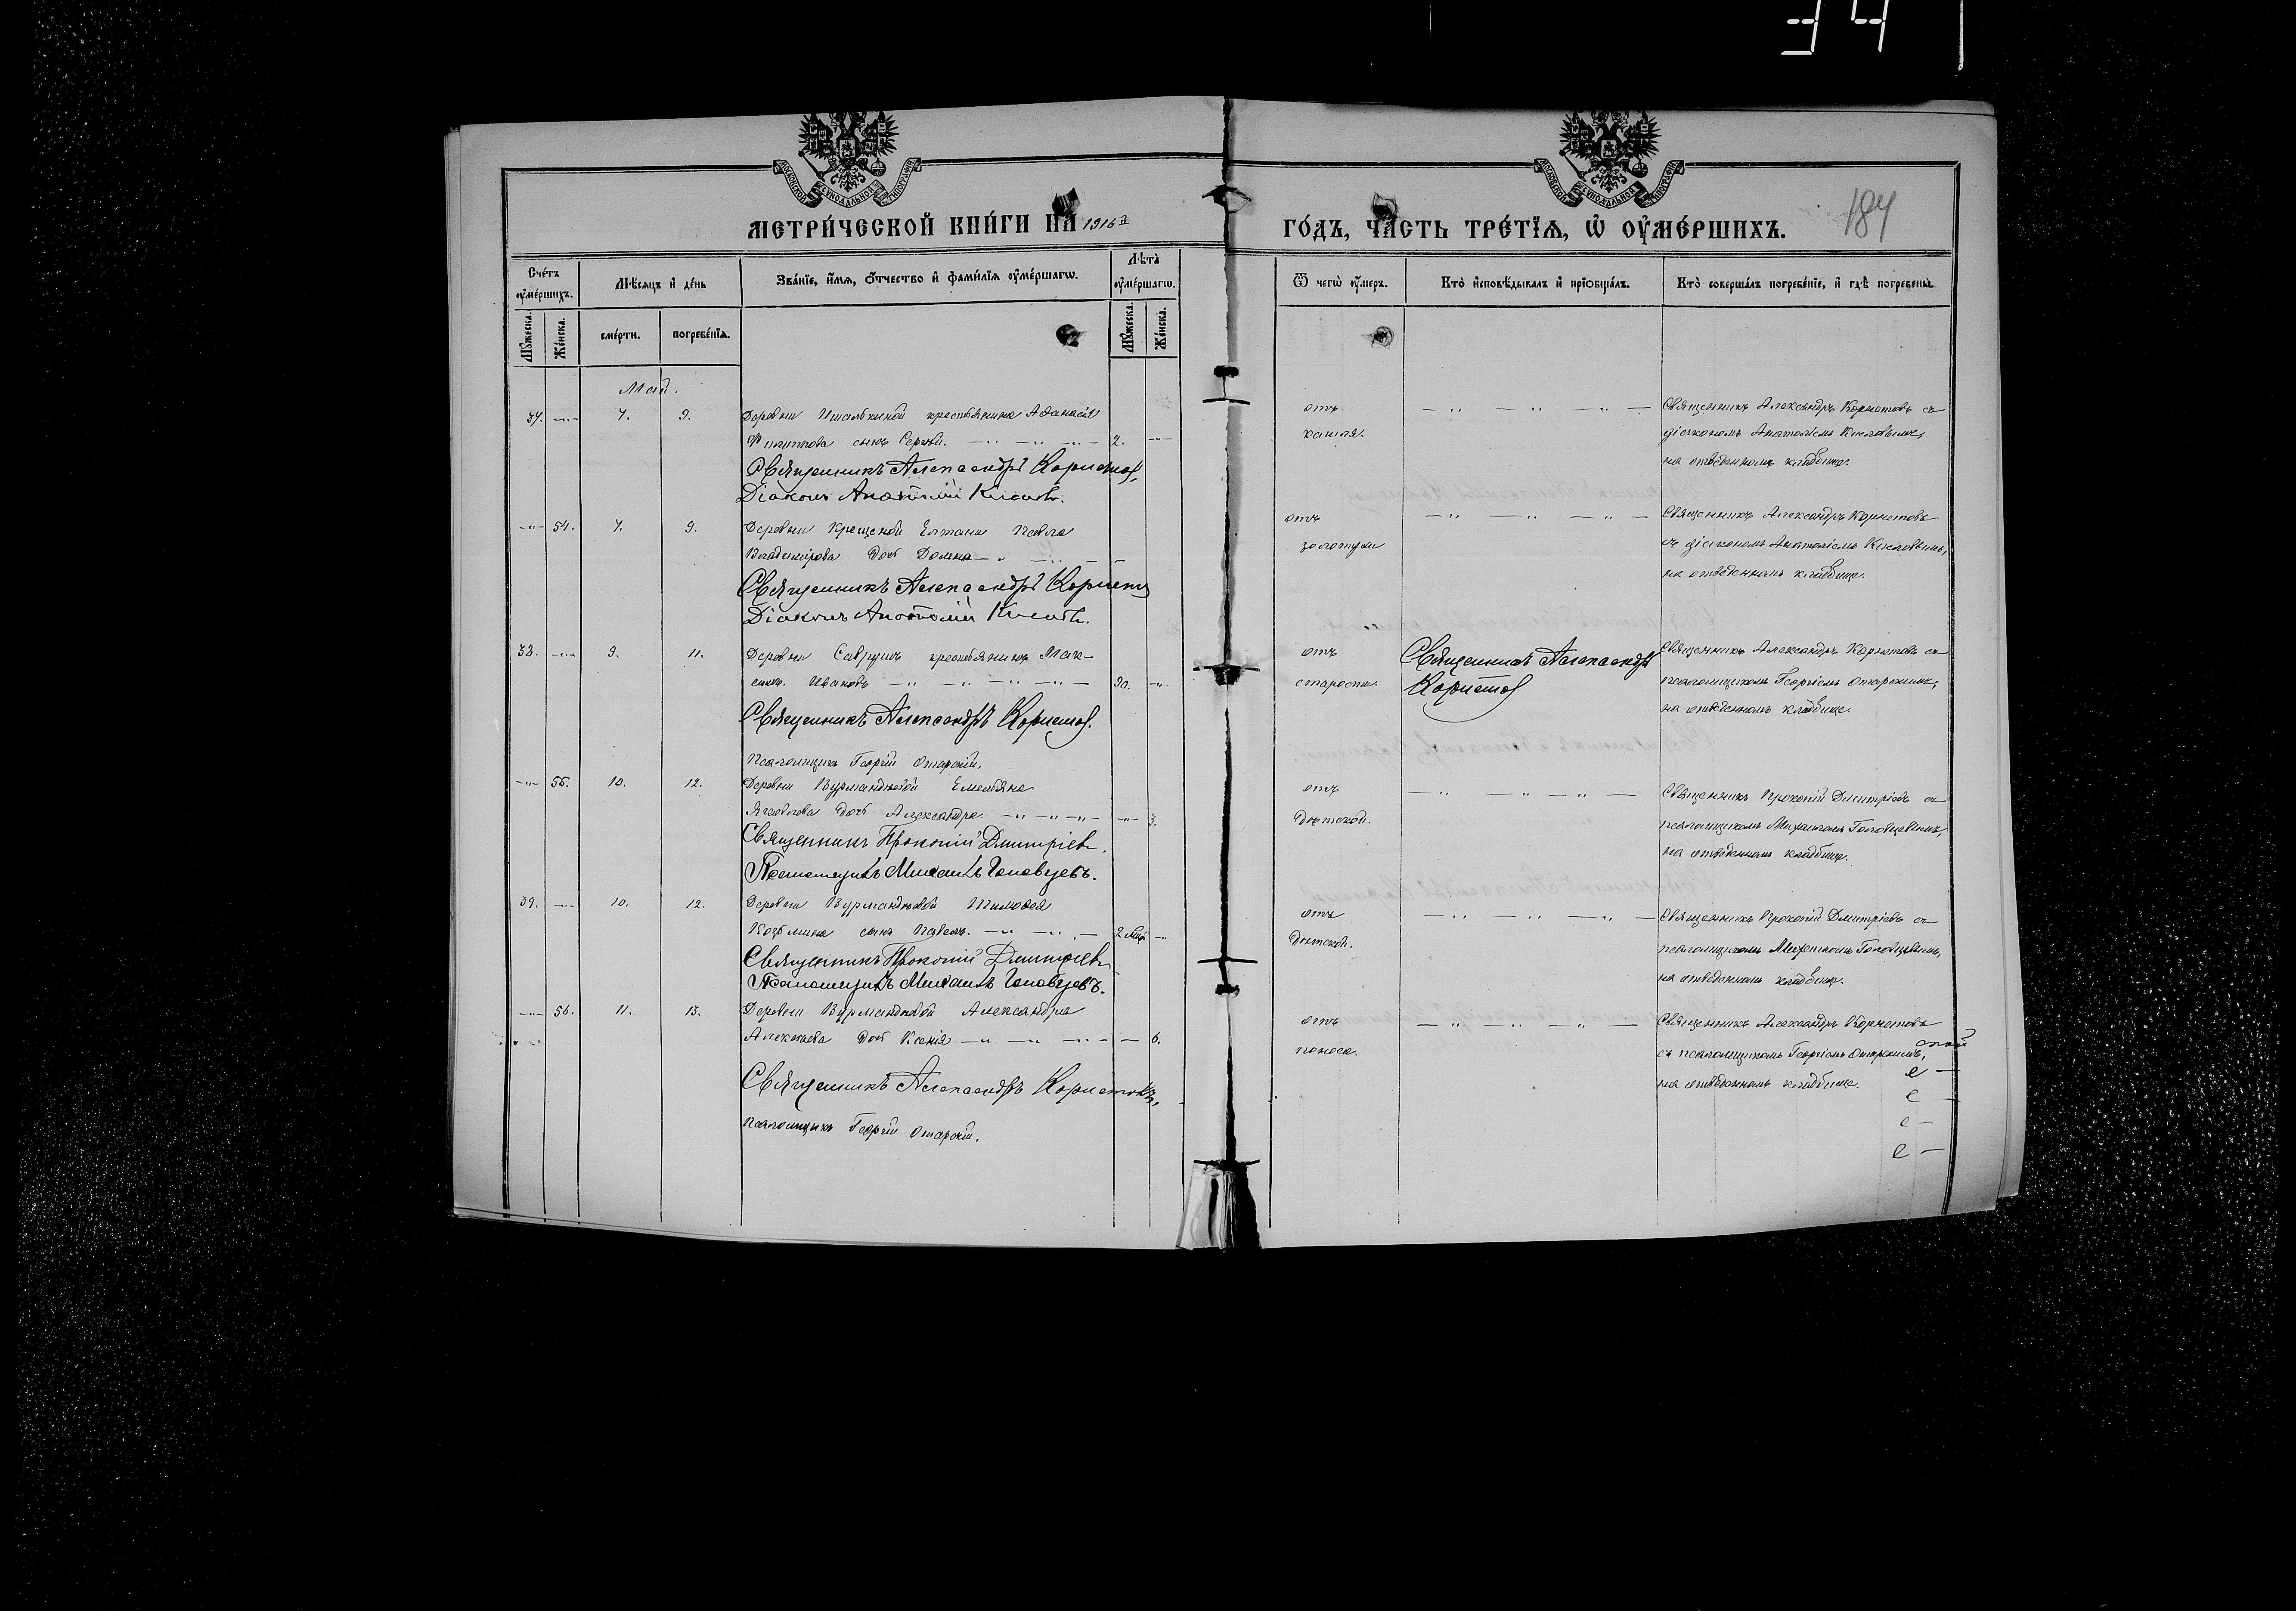 МЕТРИ́ЧЕСКОЙ КНИ́ГИ НА 1916 й
ГО́ДЪ, ЧА́СТЬ ТРЕ́ТЇѦ, Ѡ҆ ОУ҆МЕ́РШИХЪ.
184
Сче́тъ оу҆ме́ршихъ.
Мѣ́сяцъ и҆ де́нь
Зва́нїе, и҆́мѧ, ѻ҆́тчество и҆ фами́лїѧ оу҆ме́ршагѡ.
Лѣ́та оу҆ме́ршагѡ.
Ѿ чегѡ̀ оу҆́меръ.
Кто̀ и҆сповѣ́дывалъ и҆ прїѻбща́лъ.
Кто̀ соверша́лъ погребе́нїе, и҆ гдѣ̀ погребены̀.
Мꙋ́жеска.
Же́нска.
сме́рти.
погребе́нїѧ.
Мꙋ́жеска.
Же́нска.
Май.
37. 7. 9. Деревни крестьянина Аѳанасія
Филиппова сынъ Сергѣй. 2.
Священникъ Александръ Корнетовъ,
Діаконъ Анатолій Кисловъ.
отъ
кашля.
Священникъ Александръ Корнетовъ съ
діакономъ Анатоліемъ Кисловымъ,
на отведенномъ кладбище.
54. 7. 9. Деревни Крещеной Елтани Павла
Владимірова дочь Домна
Священникъ Александръ Корнетовъ
Діаконъ Анатолій Кисловъ.
отъ
золотухи
Священникъ Александръ Корнетовъ
съ діакономъ Анатоліемъ Кисловымъ,
на отведенномъ кладбище.
38. 9. 11. Деревни Саврушъ крестьянинъ Мак-
симъ Ивановъ 90.
Священникъ Александръ Корнетовъ.
Псаломщикъ Георгій Отарскій.
отъ
старости.
Священникъ Александръ
Корнетовъ
Священникъ Александръ Корнетовъ съ
псаломщикомъ Георгіемъ Отарскимъ,
на отведенномъ кладбище.
55. 10. 12. Деревни Вурмандѣевой Емельяна
Яковлева дочь Александра. 3.
Священникъ Прокопій Дмитріевъ.
Псаломщикъ Михаилъ Головцевъ.
отъ
дѣтской.
Священникъ Прокопій Дмитріевъ съ
псаломщикомъ Михаиломъ Головцевымъ,
на отведенномъ кладбище.
39. 10. 12. Деревни Вурмандѣевой Тимоѳея
Козьмина сынъ Павелъ. 2 мѣс.
Священникъ Прокопій Дмитріевъ
Псаломщикъ Михаилъ Головцевъ.
отъ
дѣтской.
Священникъ Прокопій Дмитріевъ съ
псаломщикомъ Михаиломъ Головцевымъ,
на отведенномъ кладбище.
56. 11. 13. Деревни Вурмандѣевой Александра
Алексѣева дочь Ксенія 6.
Священникъ Александръ Корнетовъ,
Псаломщикъ Георгій Отарскій.
отъ
поноса.
Священникъ Александръ Корнетовъ
съ псаломщикомъ Георгіемъ Отарскимъ,
на отведенномъ кладбище.